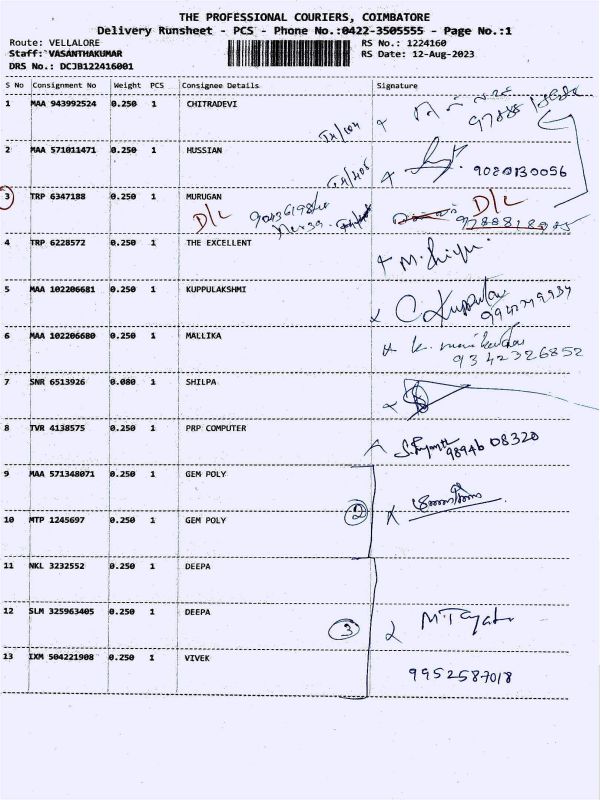 THE PROFESSIONAL COURIERS, COIMBATORE
Delivery Runsheet - PCS - Phone No.:0422-3505555 - Page No.:1
Route: VELLALORE RS No.: 1224160
Staff: VASANTHAKUMAR RS Date: 12-Aug-2023
DRS No.: DCJB122416001
S No Consignment No Weight PCS Consignee Details Signature
1 MAA 943992524 0.250 1 CHITRADEVI
2 MAA 571011471 0.250 1 HUSSIAN
3 TRP 6347188 0.250 1 MURUGAN
D/L D/L
4 TRP 6228572 0.250 1 THE EXCELLENT
5 MAA 102206681 0.250 1 KUPPULAKSHMI
6 MAA 102206680 0.250 1 MALLIKA
9342326852
7 SNR 6513926 0.080 1 SHILPA
8 TVR 4138575 0.250 1 PRP COMPUTER
98946 08320
9 MAA 571348071 0.250 1 GEM POLY
2
10 MTP 1245697 0.250 1 GEM POLY
11 NKL 3232552 0.250 1 DEEPA
12 SLM 325963405 0.250 1 DEEPA
3
13 IXM 504221908 0.250 1 VIVEK
9952587018